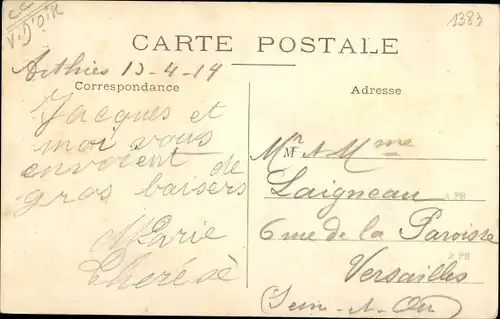 CC
V. D'OIR
1383
CARTE POSTALE
Arthies 13-4-14
Correspondance
Adresse
Jacques et
moi vous
envoient de
gros baisers
Marie
Thérèse
Mr M et Mme
Laigneau
6 rue de la Paroisse
Versailles
(Seine-et-Oise)